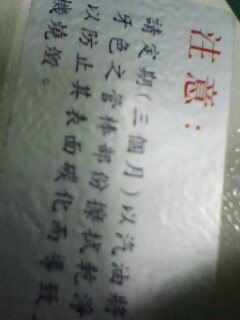 注意：
請定期(三個月)以汽油將
牙色之管体部份擦拭乾淨
以防止其表面碳化而導致
機燒燬。